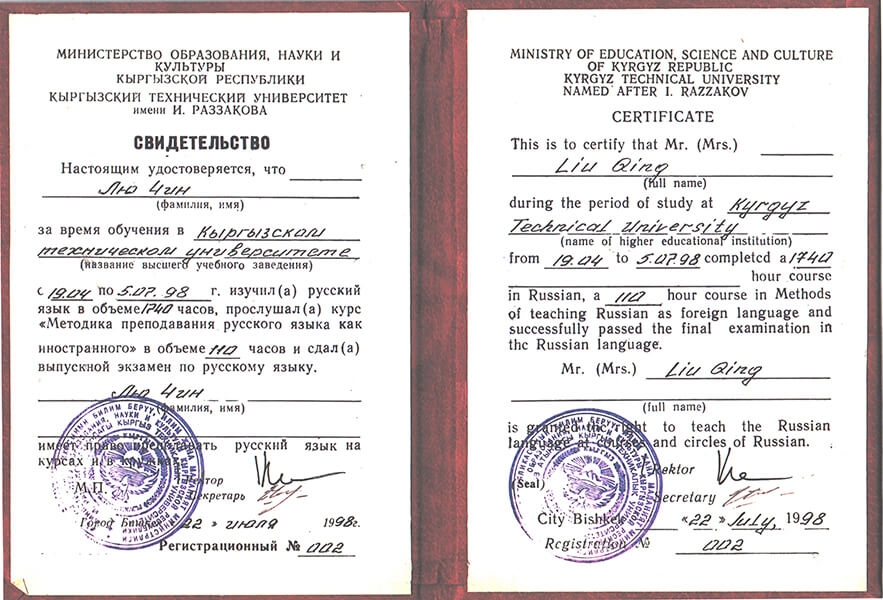 МИНИСТЕРСТВО ОБРАЗОВАНИЯ, НАУКИ И
КУЛЬТУРЫ
КЫРГЫЗСКОЙ РЕСПУБЛИКИ
КЫРГЫЗСКИЙ ТЕХНИЧЕСКИЙ УНИВЕРСИТЕТ
имени И. РАЗЗАКОВА
СВИДЕТЕЛЬСТВО
Настоящим удостоверяется, что
Лю Чин
(фамилия, имя)
за время обучения в Кыргызском
техническом университете
(название высшего учебного заведения)
с 19.04 по 5.07.98 г. изучил(а) русский
язык в объеме 1740 часов, прослушал(а) курс
«Методика преподавания русского языка как
иностранного» в объеме 110 часов и сдал(а)
выпускной экзамен по русскому языку.
Лю Чин
(фамилия, имя)
имеет право преподавать русский язык на
курсах и в кружках
М.П. Ректор
Секретарь
Город Бишкек «22» июля 1998г.
Регистрационный № 002
MINISTRY OF EDUCATION, SCIENCE AND CULTURE
OF KYRGYZ REPUBLIC
KYRGYZ TECHNICAL UNIVERSITY
NAMED AFTER I. RAZZAKOV
CERTIFICATE
This is to certify that Mr. (Mrs.)
Liu Qing
(full name)
during the period of study at Kyrgyz
Technical University
(name of higher educational institution)
from 19.04 to 5.07.98 completed a 1740
hour course
in Russian, a 110 hour course in Methods
of teaching Russian as foreign language and
successfully passed the final examination in
the Russian language.
Mr. (Mrs.) Liu Qing
(full name)
is granted the right to teach the Russian
language at courses and circles of Russian.
Rektor
(Seal)
Secretary
City Bishkek «22» July, 1998
Registration № 002